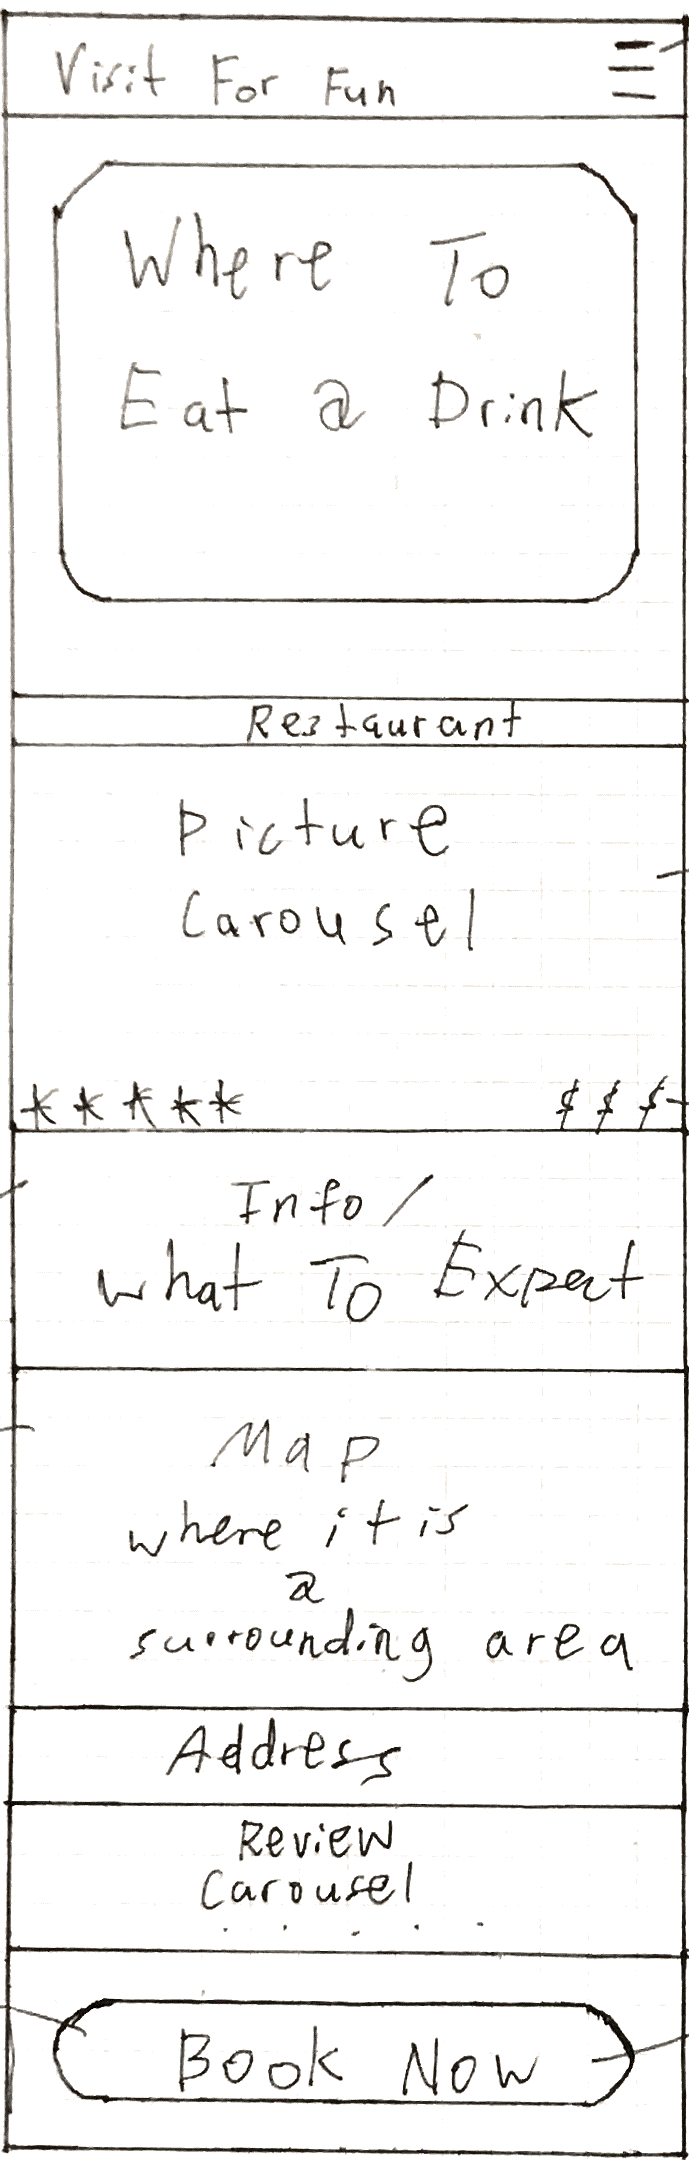 Visit For Fun
Where To
Eat & Drink
Restaurant
Picture
Carousel
***** $$$
Info/
what To Expect
Map
where it is
&
surrounding area
Address
Review
Carousel
Book Now